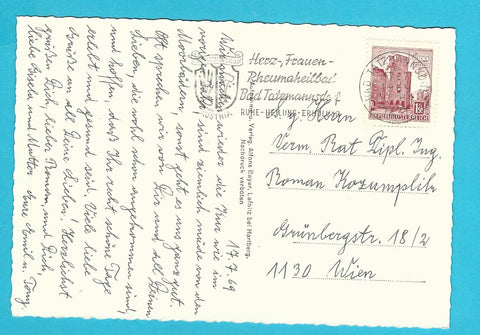 17.7.69
Wir machen wieder die Kur wie im
vorigen Jahr, sind ziemlich müde von den
Moorbädern, sonst geht es uns ganz gut.
Oft sprechen wir von Dir und all Deinen
Lieben, die wohl schon angekommen sind,
und hoffen, daß Ihr recht schöne Tage
erlebt und gesund seid. Viele liebe
Grüße an all Deine Lieben! Herzlichst
grüßen Dich, lieber Roman, und Dich,
liebe Gisela und Mutter Eure Emil u. Tony.
Herz-, Frauen-
Rheumaheilbad
Bad Tatzmannsdorf
RUHE-HEILUNG-ERHOLUNG
AUSTRIA
REPUBLIK ÖSTERREICH
Verlag Alfons Bayer, Lafnitz bei Hartberg.
Nachdruck verboten
Herrn
Verm. Rat Dipl. Ing.
Roman Kozumplik
Grünbergstr. 18/2
1130 Wien